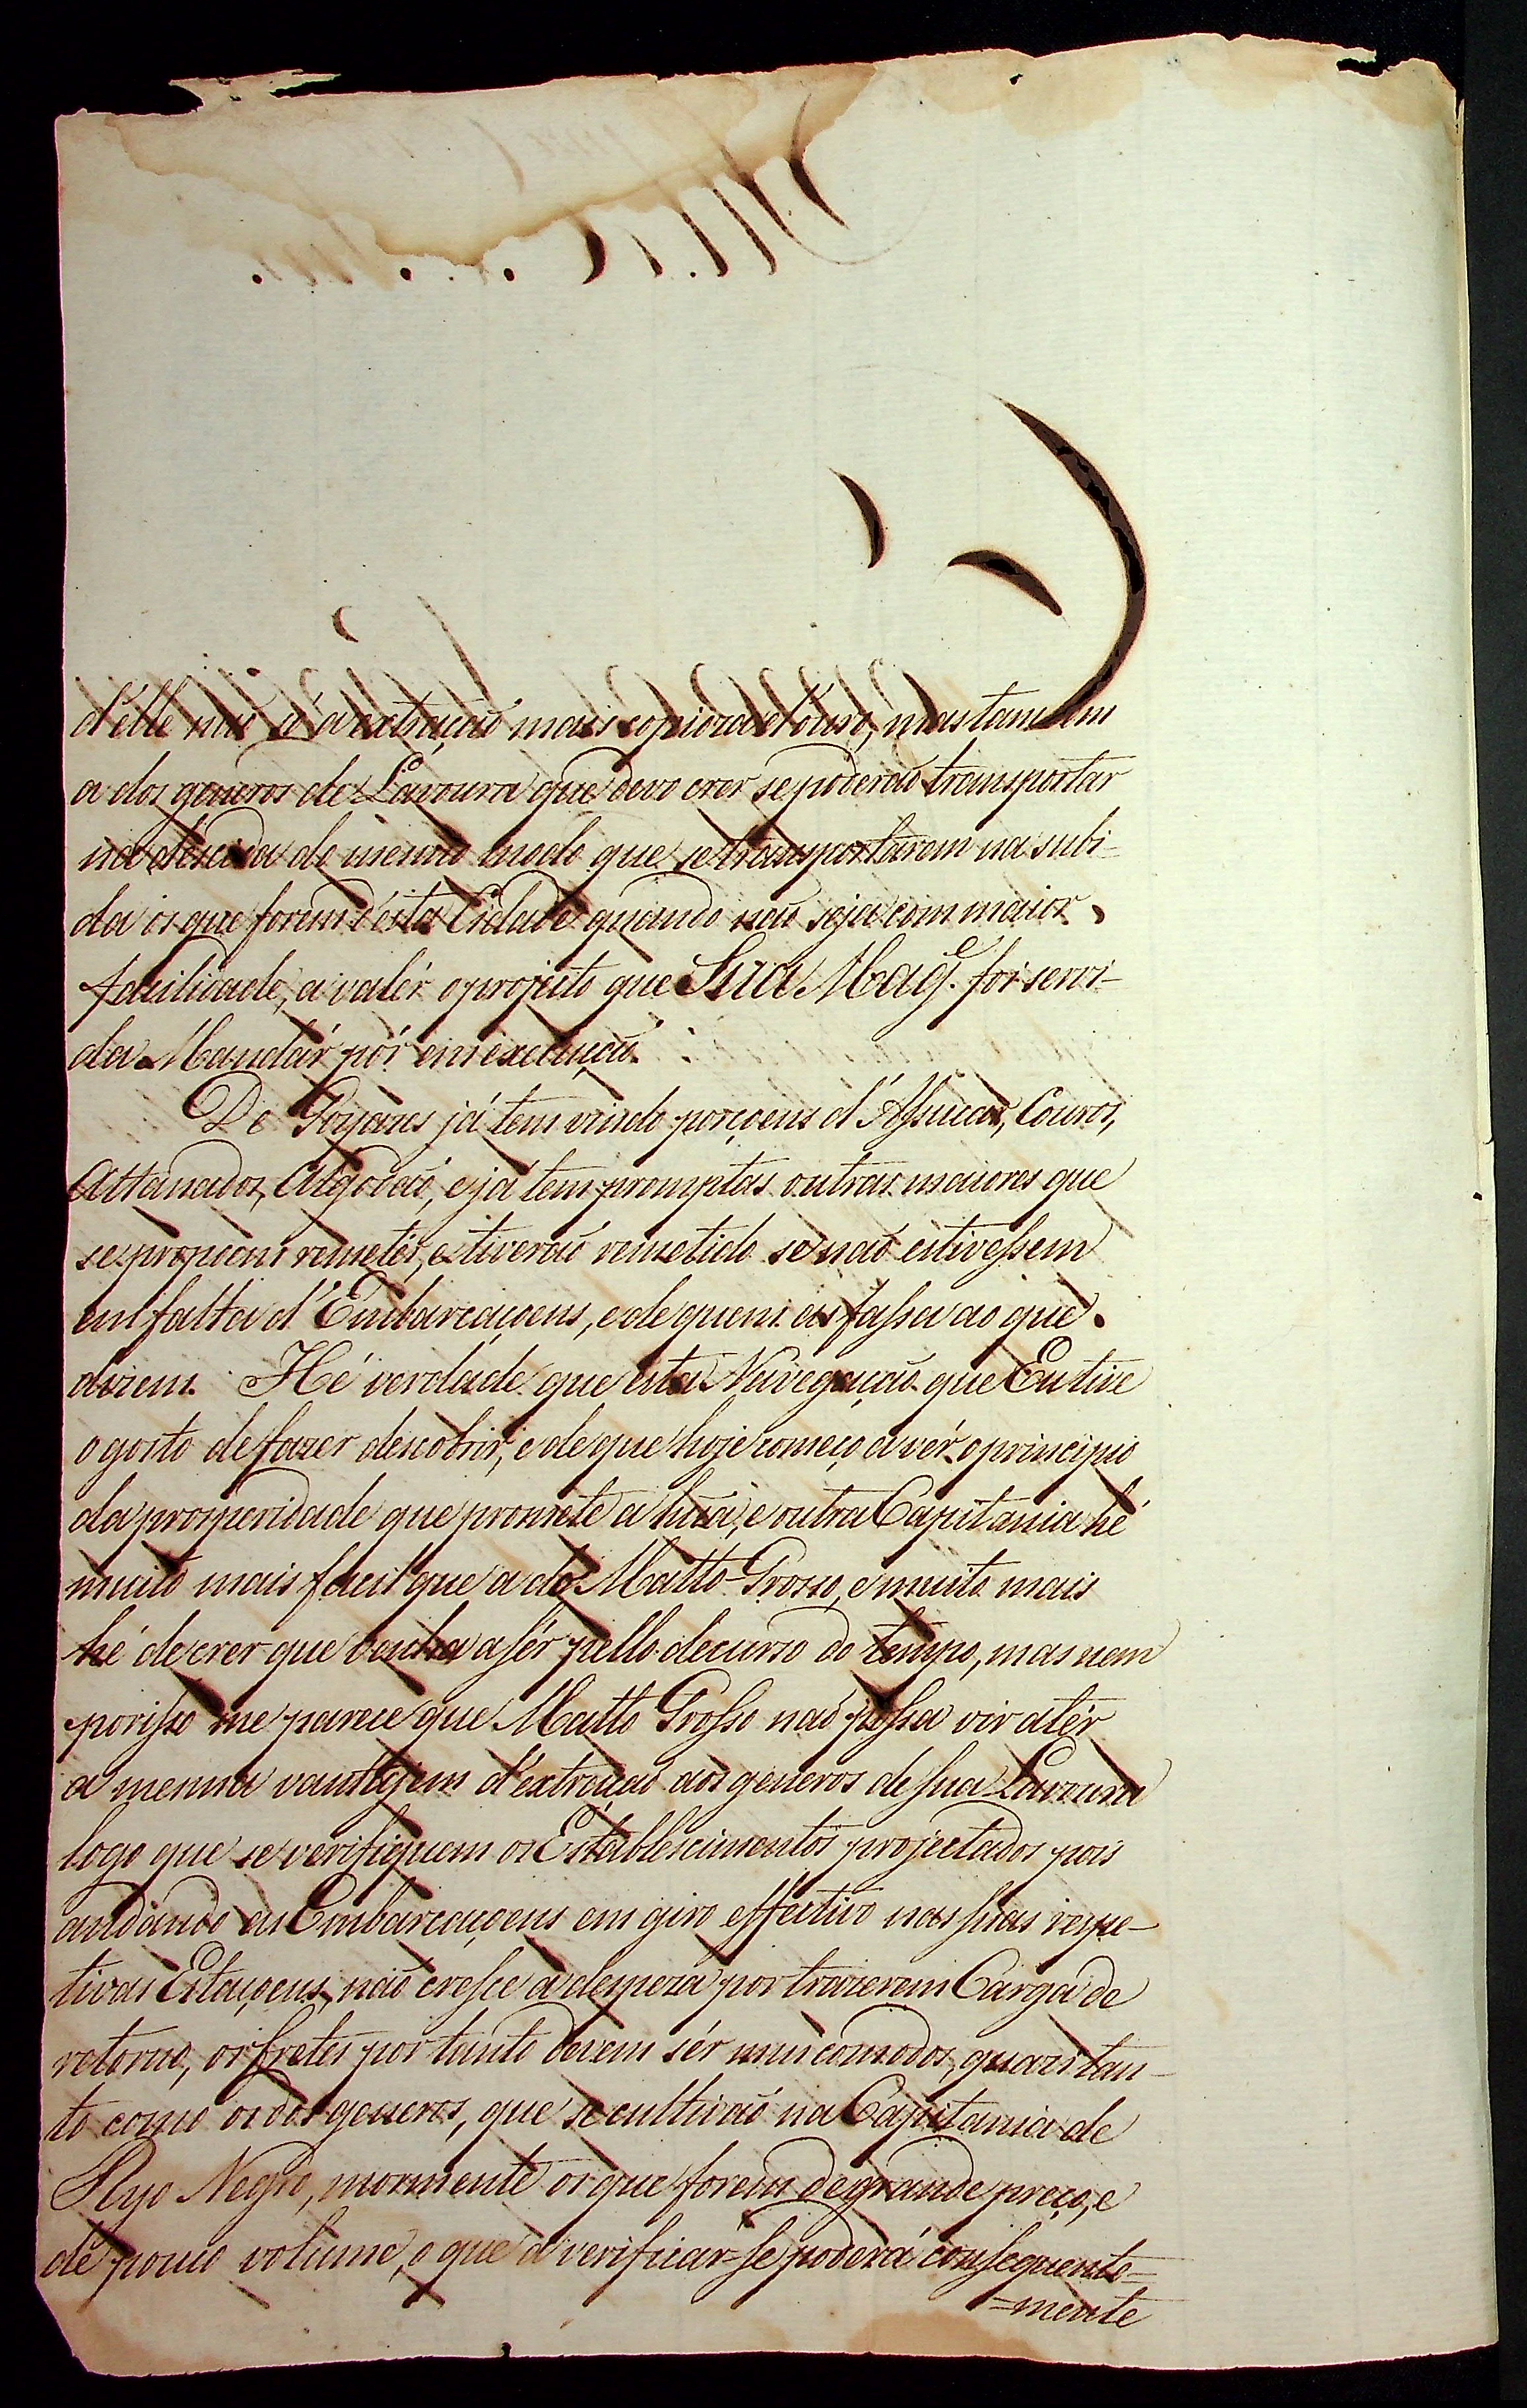 d'elle naõ só a extraçaõ mais copioza d'ouro, mas tambem
a dos generos de Lavoura que devo crer se poderaõ transportar
na descida do mesmo modo que se transportarem na subi-
da os que forem d'esta Cidade quando naõ seja com maior
facilidade, a valér o projecto que Sua Mag.e foi servi-
da Mandár pôr em execuçaõ.
De Goyazes já tem vindo porçoens d'Assucar, Couros,
Attanados, Algodaõ, e já tem promptas outras maiores que
se propoem remetér, e tiveraõ remetido se naõ estivessem
em falta d'Embarcaçoens, e de quem as fassa ao que
dizem. Hé verdáde que esta Navegaçaõ que Eu tive
o gosto de fazer descobrir, e de que hoje começo a vér o principio
da prosperidade que promete a huã, e outra Capitania hé
muito mais facil que a do Matto-Grosso, e muito mais
hé de crer que venha a sér pello decurso do tempo, mas nem
por isso me parece que Matto Grosso naõ possa vir a tér
a mesma vantagem d'extraçaõ aos generos de sua Lavoura
logo que se verifiquem os Establecimentos projectados pois
andando as Embarcaçoens em giro effectivo nas suas respe-
tivas Estaçoens, naõ cresce a despeza por trazerem Carga de
retorno, os fretes por tanto devem sér mui comodos, quazi tan-
to como os dos generos, que se cultivaõ na Capitania de
Ryo Negro, mormente os que forem de grande preço, e
de pouco volume, o que a verificar-se poderá consequente=
=mente